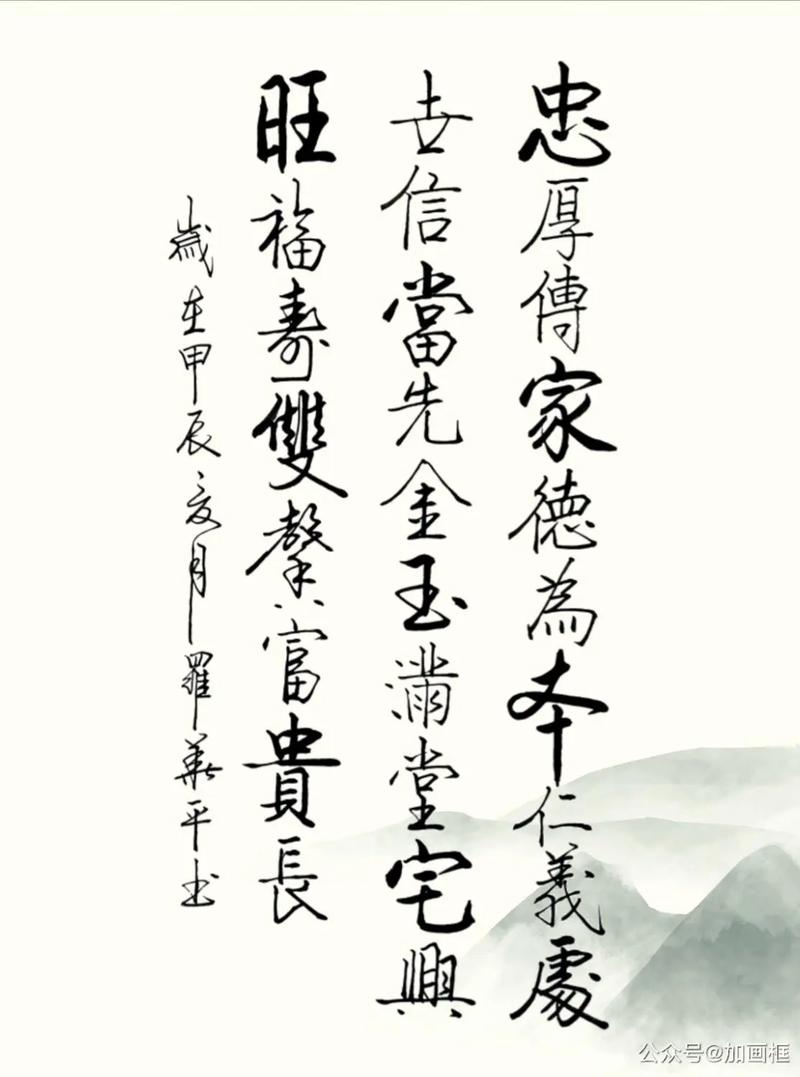 忠厚傳家德為本仁義處
世信當先金玉滿堂宅興
旺福壽雙馨富貴長
歲在甲辰之夏月羅華平书
公众号@加画框